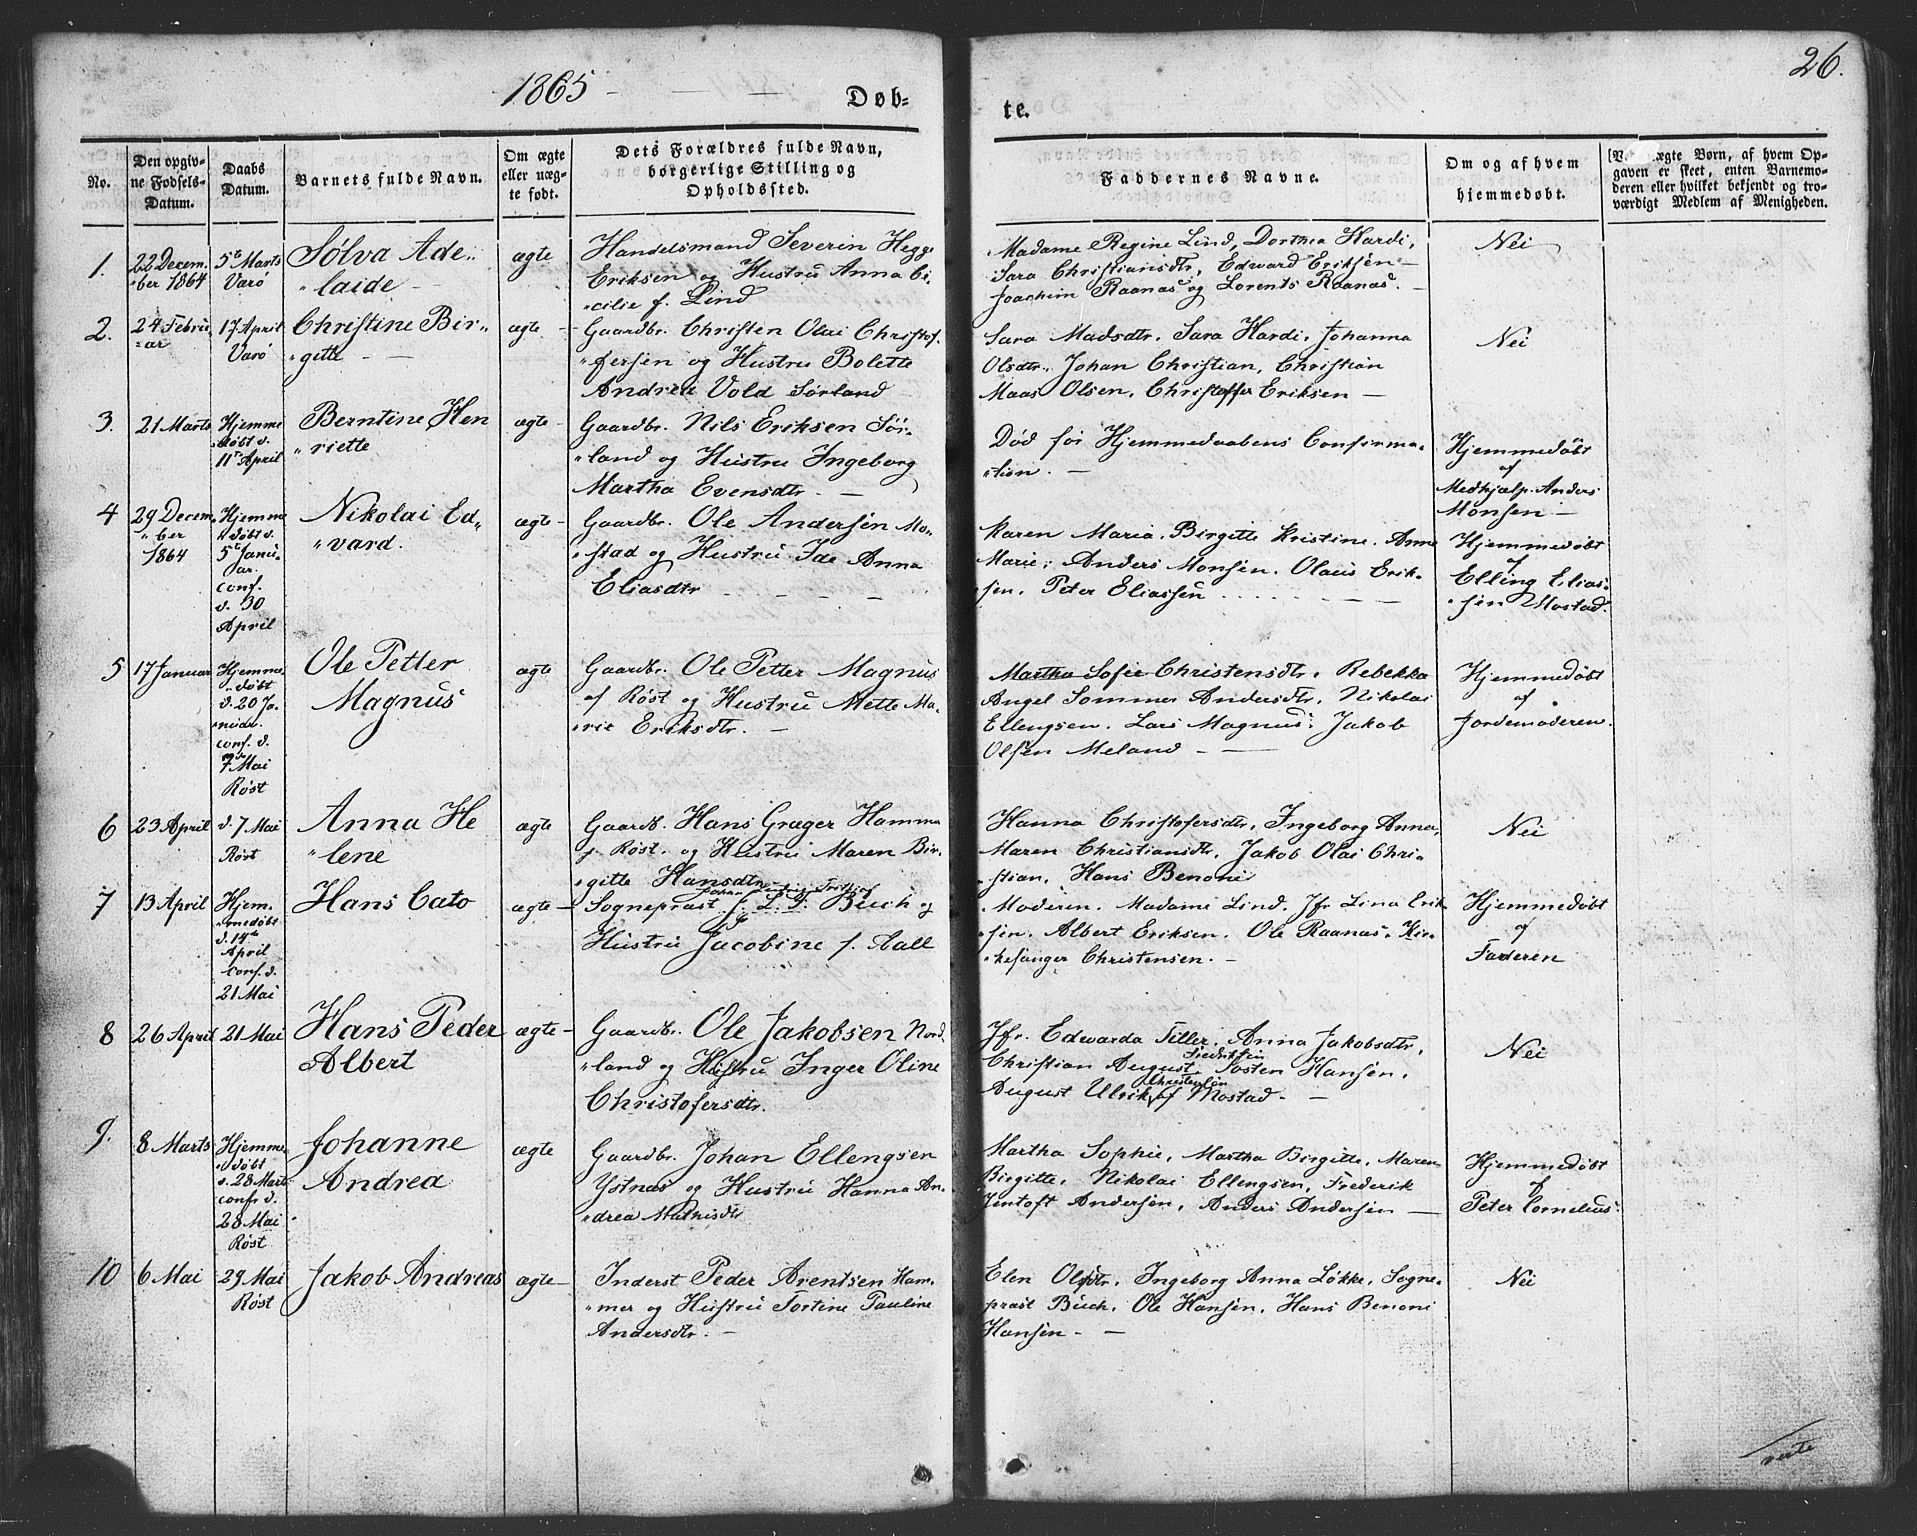 26.
1865
Døb-
te.
No.
Den opgiv-
ne Fødsels-
Datum.
Daabs
Datum.
Barnets fulde Navn.
Om ægte
eller uæg-
te født.
Dets Forældres fulde Navn,
borgerlige Stilling og
Opholdssted.
Faddernes Navne.
Om og af hvem
hjemmedøbt.
ægte Børn, af hvem Op-
gaven er skeet, enten Barnemo-
deren eller hvilket bekjendt og tro-
værdigt Medlem af Menigheden.
1.
22 Decem-
ber 1864
5te Marts
Varø
Sølva Ade-
laide
ægte
Handelsmand Severin Hegge
Eriksen og Hustru Anna Ce-
cilie f. Lind
Madame Regine Lind, Dorthea Hardi,
Sara Christiansdtr, Edward Eriksen
Joachim Raanas og Lorents Raanas.
Nei
2.
24 Febru-
ar
17 April
Varø
Christine Bir-
gitte
ægte
Gaardbr. Christen Olai Christof-
fersen og Hustru Bolette
Andrea Vold Sørland
Sara Madsdtr. Sara Hardi. Johanna
Olsdtr. Johan Christian, Christian
Maas Olsen. Christoffer Eriksen
Nei
3.
21 Marts
Hjemme
døbt d.
11te April
Berntine Hen
riette
ægte
Gaardbr. Nils Eriksen Sør-
land og Hustru Ingeborg
Martha Evensdtr.
Død før Hjemmedaabens Confirma-
tion.
Hjemmedøbt
af
Medhjælp. Anders
Monsen
4
29 Decem-
ber
1864
Hjemme
døbt d.
5te Janu-
ar.
conf.
d. 30
April
Nikolai Ed-
vard.
ægte
Gaardbr. Ole Andersen Mo-
stad og Hustru Ide Anna
Eliasdtr
Karen Maria. Birgitte Kristine. Anne
Marie; Anders Monsen. Olaus Erik-
sen. Peter Eliassen
Hjemmedøbt
af
Elling Elias-
sen Mostad.
5
17 Januar
Hjemme-
døbt
d. 20 Ja-
nuar.
conf. d.
7de Mai
Røst
Ole Petter
Magnus
ægte
Gaardbr. Ole Petter Magnus
af Røst og Hustru Mette Ma-
rie Eriksdtr.
Martha Sofie Christensdtr. Rebekka
Angel Sommer Andersdtr. Nikolai
Ellengsen. Lars Magnus. Jakob
Olsen Meland
Hjemmedøbt
af
Jordemoderen.
6
23 April
d. 7 Mai
Røst
Anna He
lene
ægte
Gaardb. Hans Græger Hamma
Røst. og Hustru Maren Bir-
gitte Hansdtr
Hanna Christofersdtr. Ingeborg Anna,
Maren Christiansdtr. Jakob Olai Chri-
stian. Hans Benoni
Nei
7
13 April
Hjem-
medøbt
d. 14de
April
conf. d.
21 Mai
Hans Cato
ægte
Sogneprast J. L. F. Buch og
Hustru Jacobine f. Aall
Moderen. Madame Lind. Jfr Lina Erik-
sen. Albert Eriksen. Ole Raanas. Kir-
kesanger Christensen.
Hjemmedøbt
af
Faderen
8
26 April
21 Mai
Hans Peder
Albert
ægte
Gaardbr. Ole Jakobsen Nord-
land og Hustru Inger Oline
Christofersdtr.
Jfr. Edwarda Tiller. Anna Jakobsdtr.
Christian August. Tosten Hansen.
August Ulrik Christensen af Mostad.
Nei
9.
8 Marts
Hjemme-
døbt
d. 28 Marts
conf. d.
28 Mai
Røst
Johanne
Andrea
ægte
Gaardbr. Johan Ellengsen
Ystnas og Hustru Hanna An-
drea Mathisdtr
Martha Sophie, Martha Birgitte, Maren
Birgitte. Nikolai Ellengsen. Frederik
Jentoft Andersen. Anders Andersen
Hjemmedøbt
af
Peter Cornelius
10
6 Mai
29 Mai
Røst
Jakob Andreas
ægte
Inderst Peder Arentsen Ham-
mer og Hustru Tortine Pauline
Andersdtr.
Elen Olsdtr. Ingeborg Anna Løkke. Sogne-
prast Buch. Ole Hansen. Hans Benoni
Hansen
Nei
verte